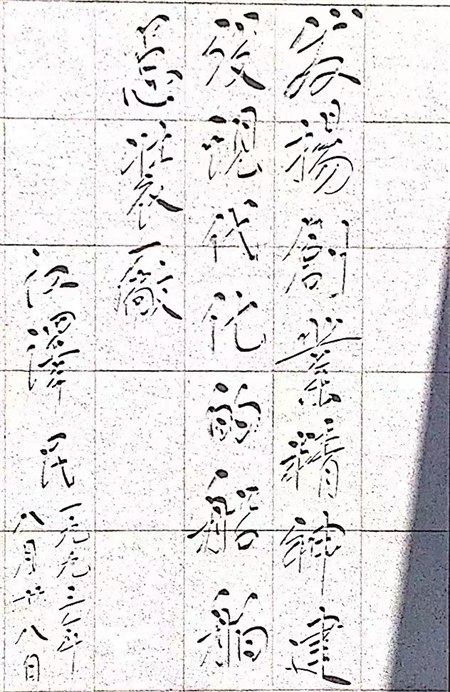 发揚創業精神建
设現代化的船舶
总裝厰
江澤民
一九九三年
八月廿八日